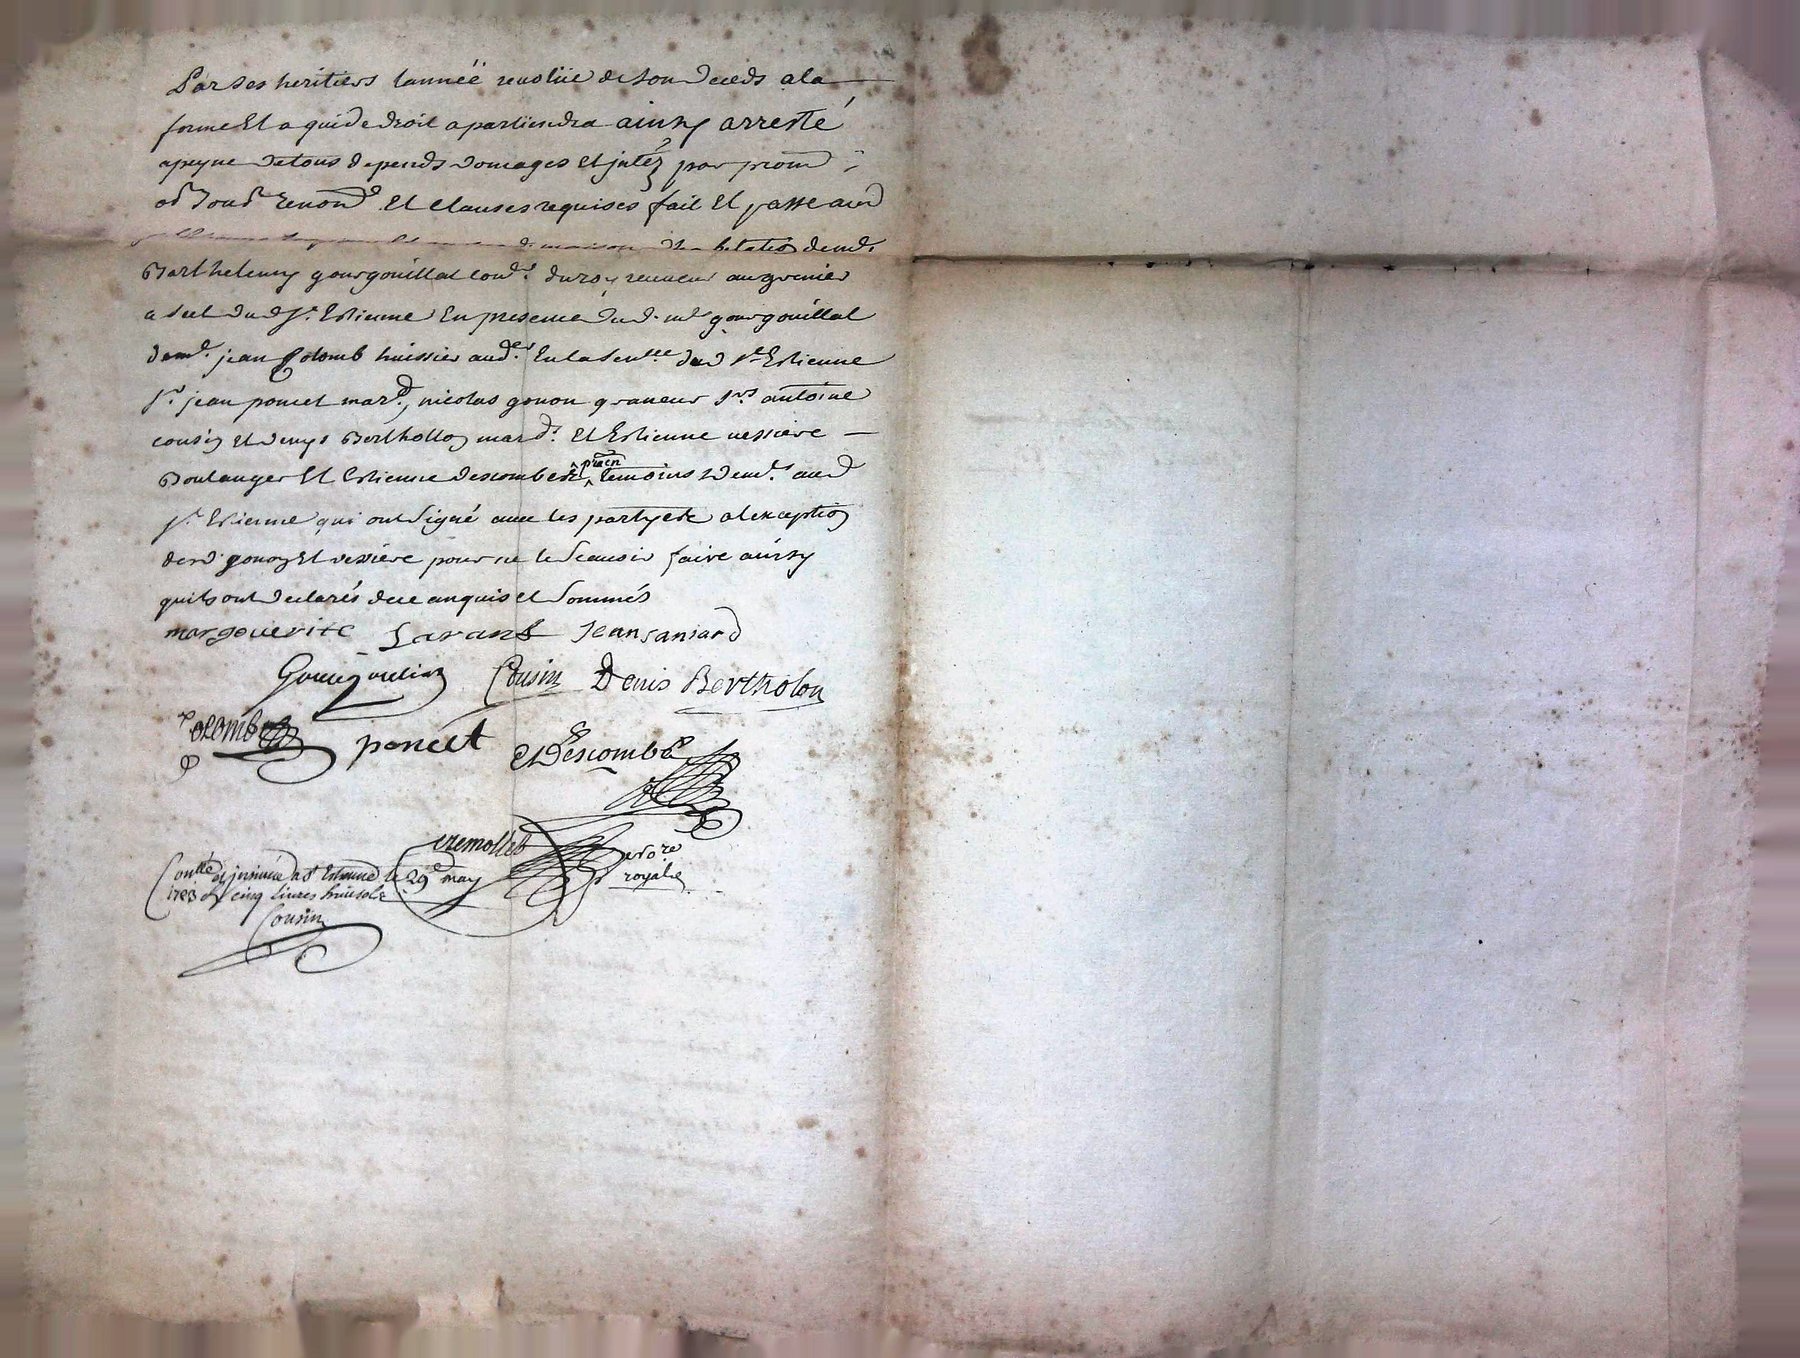 Par ses heritiers lanneé revolüe de son deceds a la
forme Et a qui de droit apartiendra ainsy arresté
apeyne de tous depends domages et jntéz par prom
obd soud renond Et clauses requises fait Et passé aud
maison dhabitation de md
Barthelemy gourgouillat cond du roy receveur au grenier
a sel dud st Estienne En presence dud md gourgouillat
de md jean Colomb huissier aud En la senee dud st Estienne
sr jean poncet mard, nicolas gonon graveur srs antoine
cousin et denys Berthollon mards Et Estienne vessiere
Boulanger Et Estienne descombes pracn temoins demd aud
st Estienne qui ont signé avec les partyes a lexception
desd gonon Et vessiere pour ne le scavoir faire ainsy
quils ont declarés de ce enquis et sommés
margouerite Jean
Cousin Denis Bertholon
Colomb poncet Descombe
nore
Conllé & jnsinué a st Estienne le 29e may royal
cinq livres huit sols
Cousin